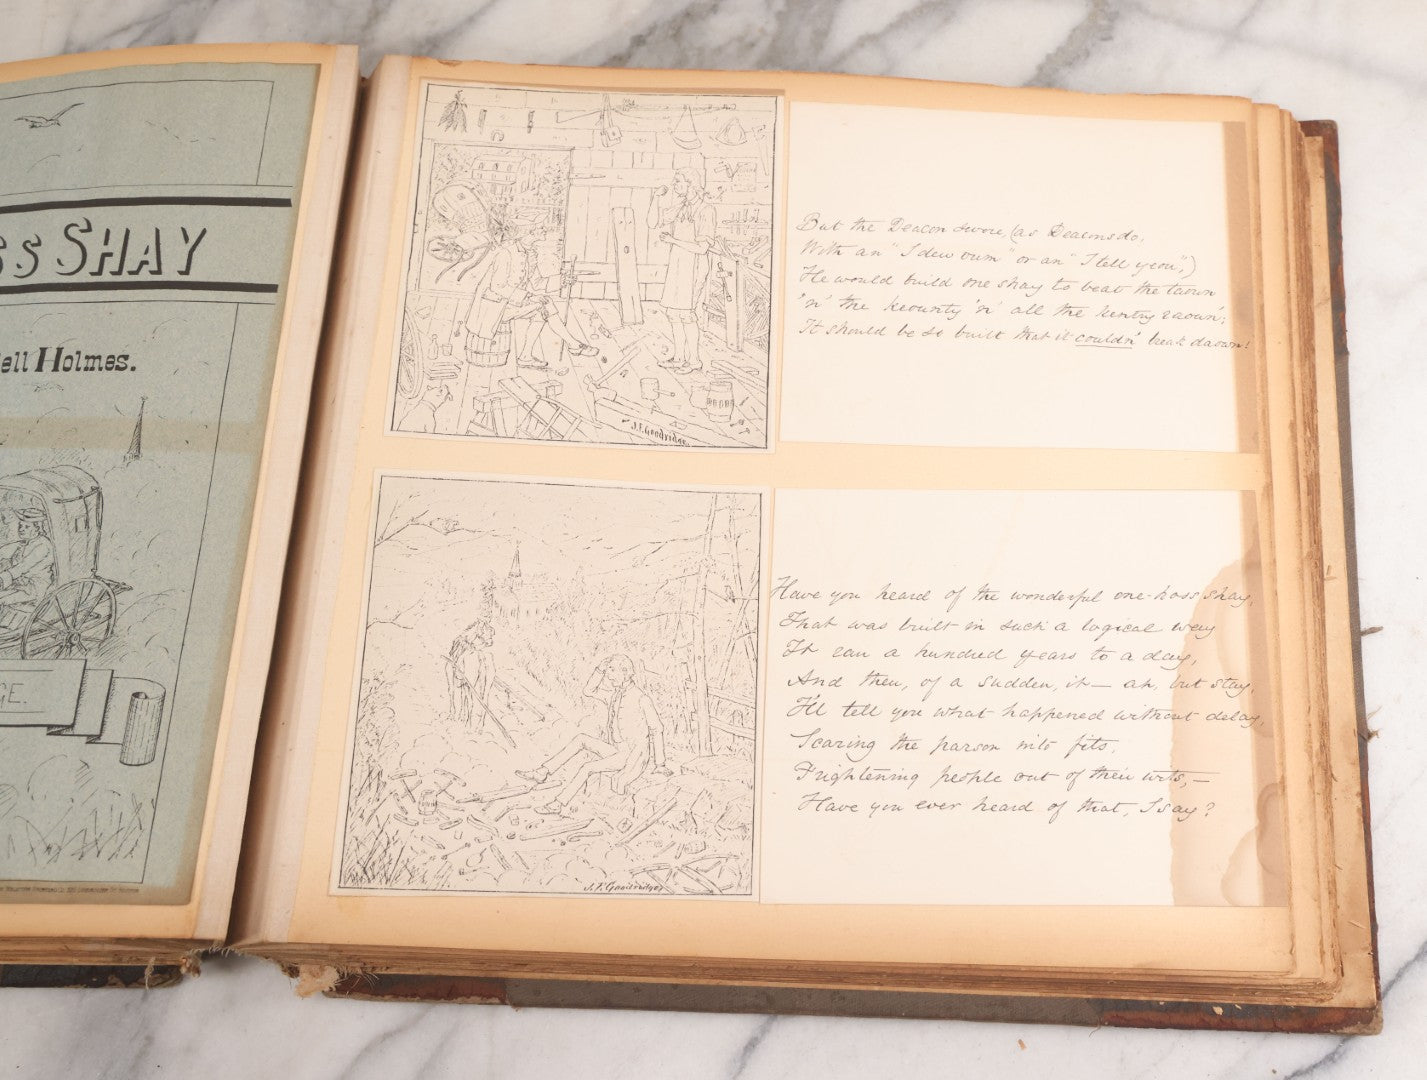 SS SHAY
ell Holmes.
GE.
J. F. Goodridge.
But the Deacon swore, (as Deacons do,
With an "I dew vum" or an "I tell yeou",)
He would build one shay to beat the taown
'n' the keounty 'n' all the kentry raoun';
It should be so built that it couldn' break daown!
J. F. Goodridge
Have you heard of the wonderful one-hoss shay,
That was built in such a logical way
It ran a hundred years to a day,
And then, of a sudden, it— ah, but stay,
I'll tell you what happened without delay,
Scaring the parson into fits,
Frightening people out of their wits,—
Have you ever heard of that, I say?